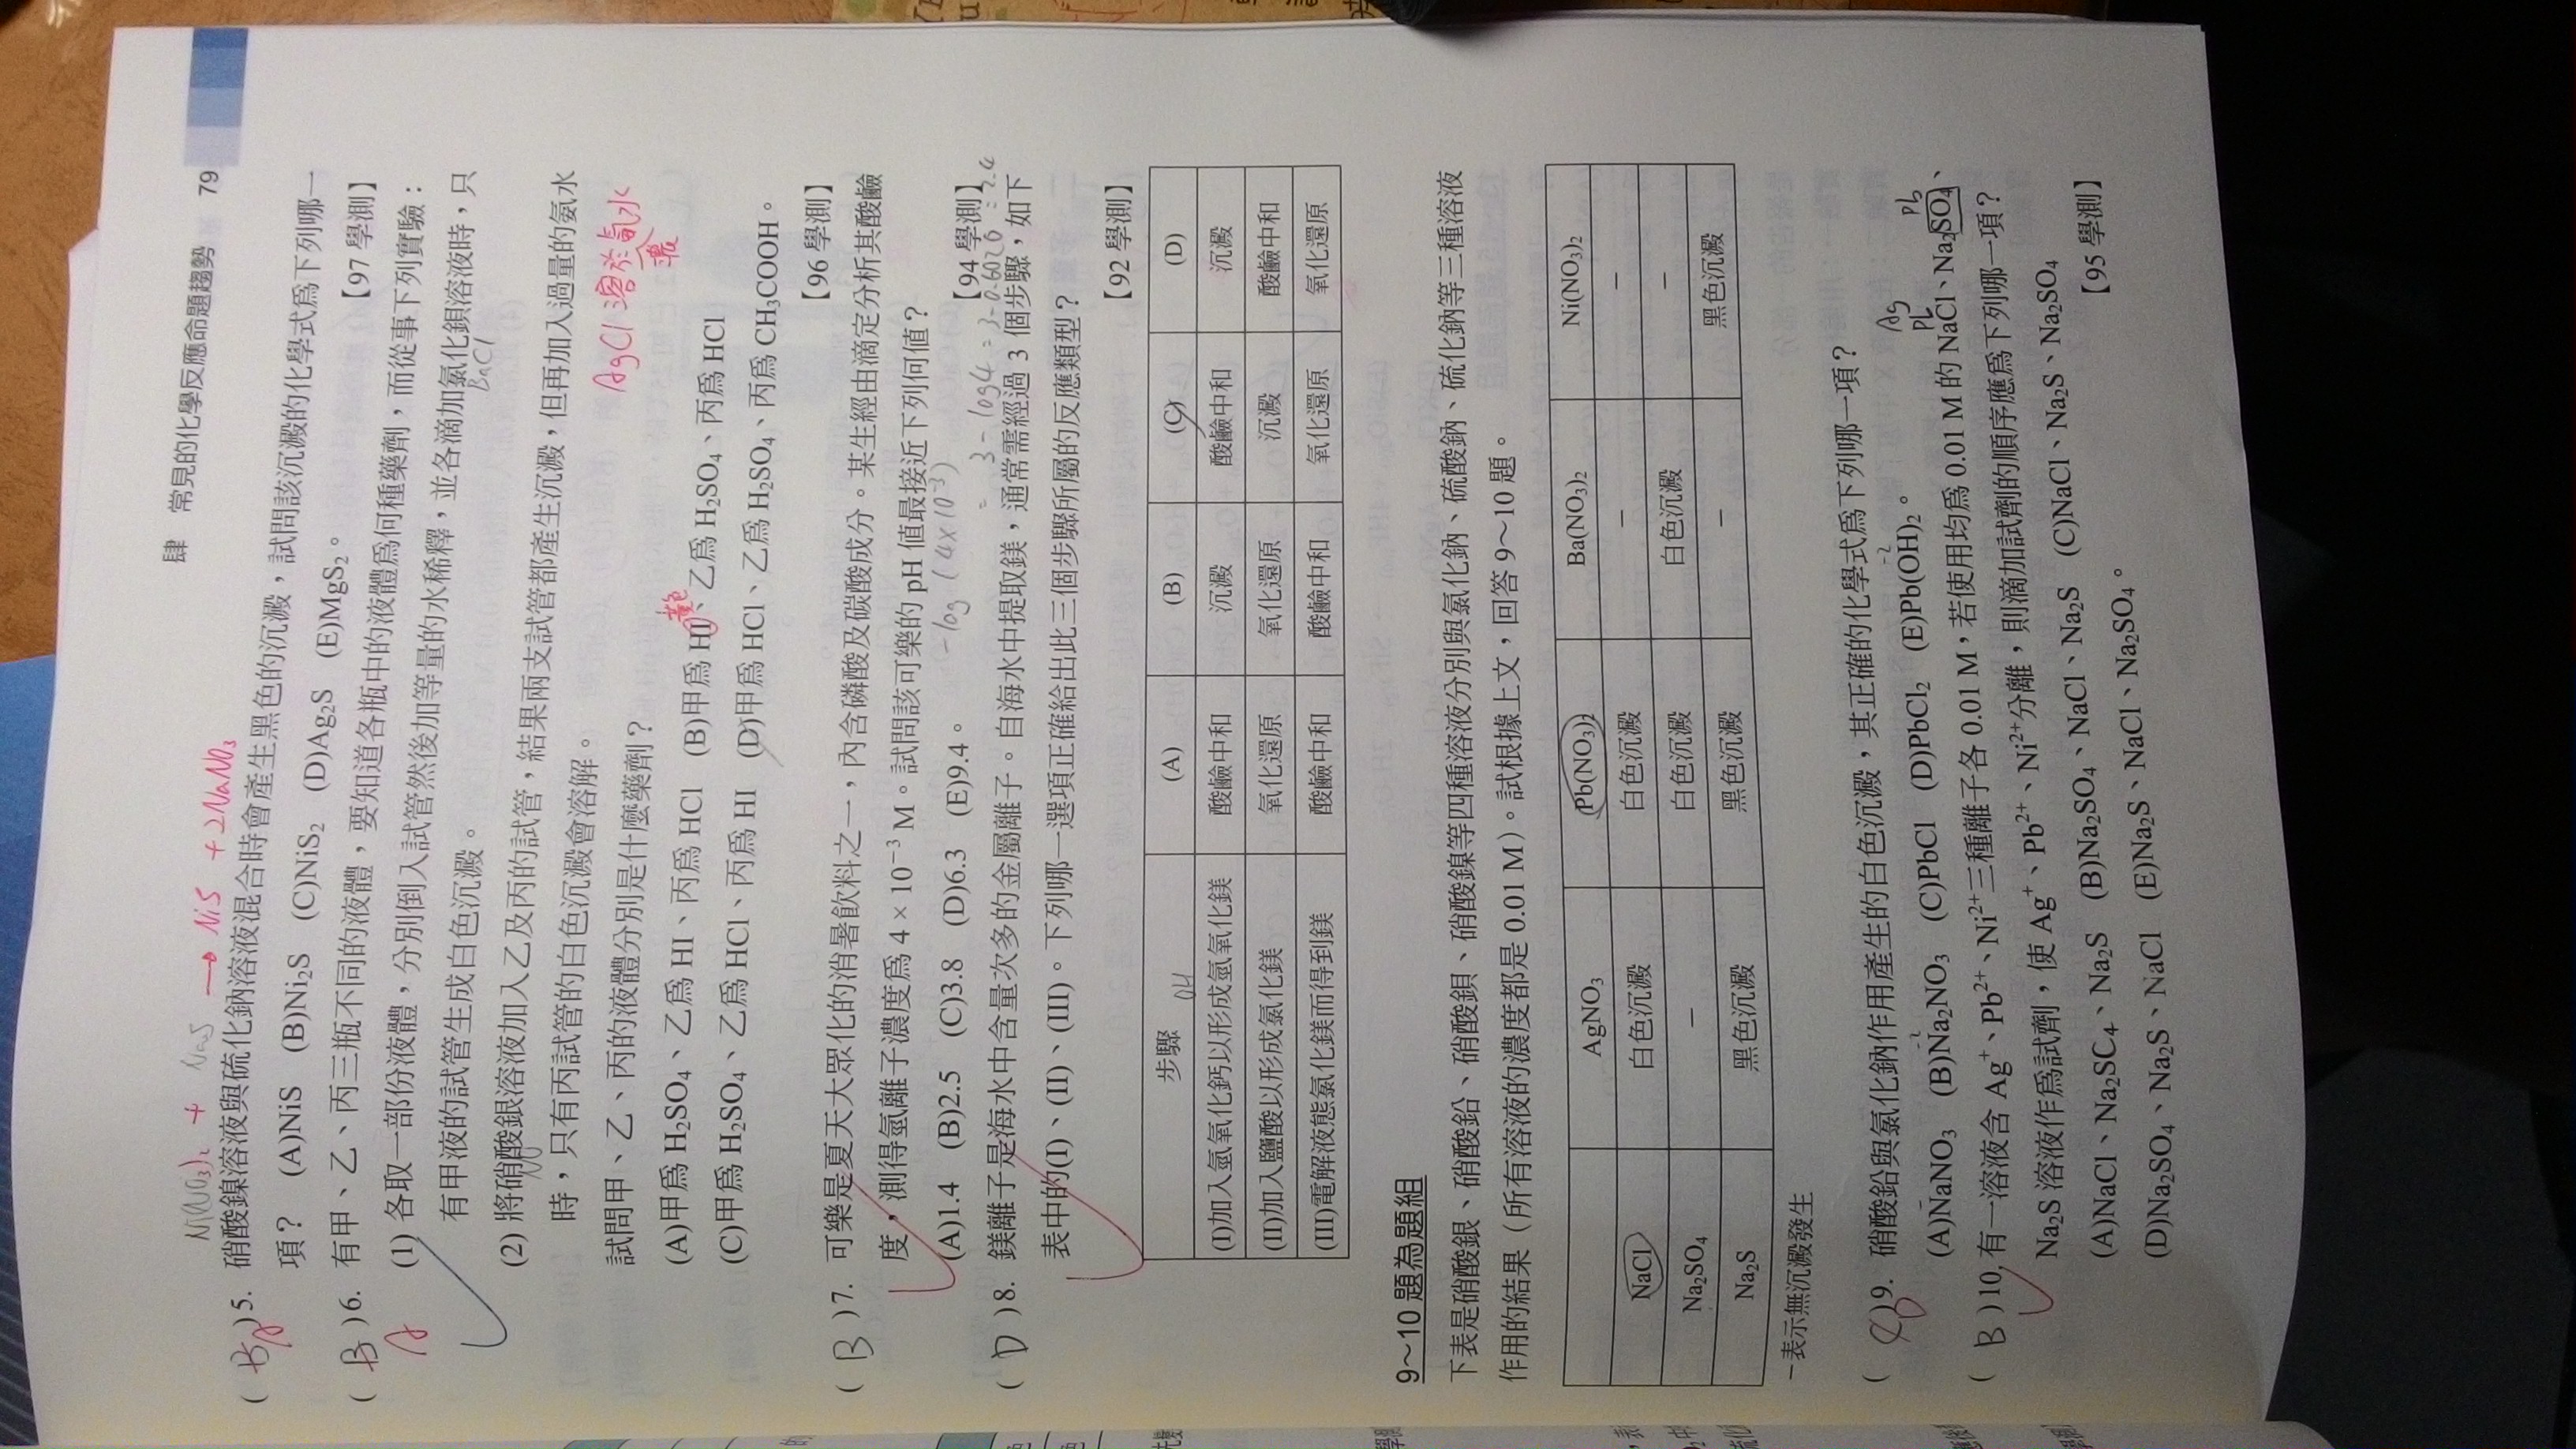 肆 常見的化學反應命題趨勢 79
Ni(NO₃)₂ + NaS → NiS + 2NaNO₃
( B A )5. 硝酸鎳溶液與硫化鈉溶液混合時會產生黑色的沉澱，試問該沉澱的化學式為下列哪一
項？ (A)NiS (B)Ni₂S (C)NiS₂ (D)Ag₂S (E)MgS₂。 【97 學測】
( B )6. 有甲、乙、丙三瓶不同的液體，要知道各瓶中的液體為何種藥劑，而從事下列實驗：
A
(1) 各取一部份液體，分別倒入試管然後加等量的水稀釋，並各滴加氯化鋇溶液時，只
BaCl
有甲液的試管生成白色沉澱。
(2) 將硝酸銀溶液加入乙及丙的試管，結果兩支試管都產生沉澱，但再加入過量的氨水
時，只有丙試管的白色沉澱會溶解。
AgCl 溶於氨水
濃
試問甲、乙、丙的液體分別是什麼藥劑？
(A)甲為 H₂SO₄、乙為 HI、丙為 HCl (B)甲為 HI、乙為 H₂SO₄、丙為 HCl
黃色
(C)甲為 H₂SO₄、乙為 HCl、丙為 HI (D)甲為 HCl、乙為 H₂SO₄、丙為 CH₃COOH。
【96 學測】
( B )7. 可樂是夏天大眾化的消暑飲料之一，內含磷酸及碳酸成分。某生經由滴定分析其酸鹼
度，測得氫離子濃度為 4 × 10⁻³ M。試問該可樂的 pH 值最接近下列何值？
(A)1.4 (B)2.5 (C)3.8 (D)6.3 (E)9.4。 【94 學測】
-log (4×10⁻³)
= 3-log4 = 3-0.6020 = 2.4
( D )8. 鎂離子是海水中含量次多的金屬離子。自海水中提取鎂，通常需經過 3 個步驟，如下
表中的(I)、(II)、(III)。下列哪一選項正確給出此三個步驟所屬的反應類型？
【92 學測】
步驟 (A) (B) (C) (D)
OH
(I)加入氫氧化鈣以形成氫氧化鎂 酸鹼中和 沉澱 酸鹼中和 沉澱
(II)加入鹽酸以形成氯化鎂 氧化還原 氧化還原 沉澱 酸鹼中和
(III)電解液態氯化鎂而得到鎂 酸鹼中和 酸鹼中和 氧化還原 氧化還原
9～10 題為題組
下表是硝酸銀、硝酸鉛、硝酸鋇、硝酸鎳等四種溶液分別與氯化鈉、硫酸鈉、硫化鈉等三種溶液
作用的結果（所有溶液的濃度都是 0.01 M）。試根據上文，回答 9～10 題。
AgNO₃ Pb(NO₃)₂ Ba(NO₃)₂ Ni(NO₃)₂
NaCl 白色沉澱 白色沉澱 － －
Na₂SO₄ － 白色沉澱 白色沉澱 －
Na₂S 黑色沉澱 黑色沉澱 － 黑色沉澱
－表示無沉澱發生
( D )9. 硝酸鉛與氯化鈉作用產生的白色沉澱，其正確的化學式為下列哪一項？
(A)NaNO₃ (B)Na₂NO₃ (C)PbCl (D)PbCl₂ (E)Pb(OH)₂。
Ag
Pb Pb
( B )10. 有一溶液含 Ag⁺、Pb²⁺、Ni²⁺三種離子各 0.01 M，若使用均為 0.01 M 的 NaCl、Na₂SO₄、
Na₂S 溶液作為試劑，使 Ag⁺、Pb²⁺、Ni²⁺分離，則滴加試劑的順序應為下列哪一項？
(A)NaCl、Na₂SC₄、Na₂S (B)Na₂SO₄、NaCl、Na₂S (C)NaCl、Na₂S、Na₂SO₄
(D)Na₂SO₄、Na₂S、NaCl (E)Na₂S、NaCl、Na₂SO₄。 【95 學測】